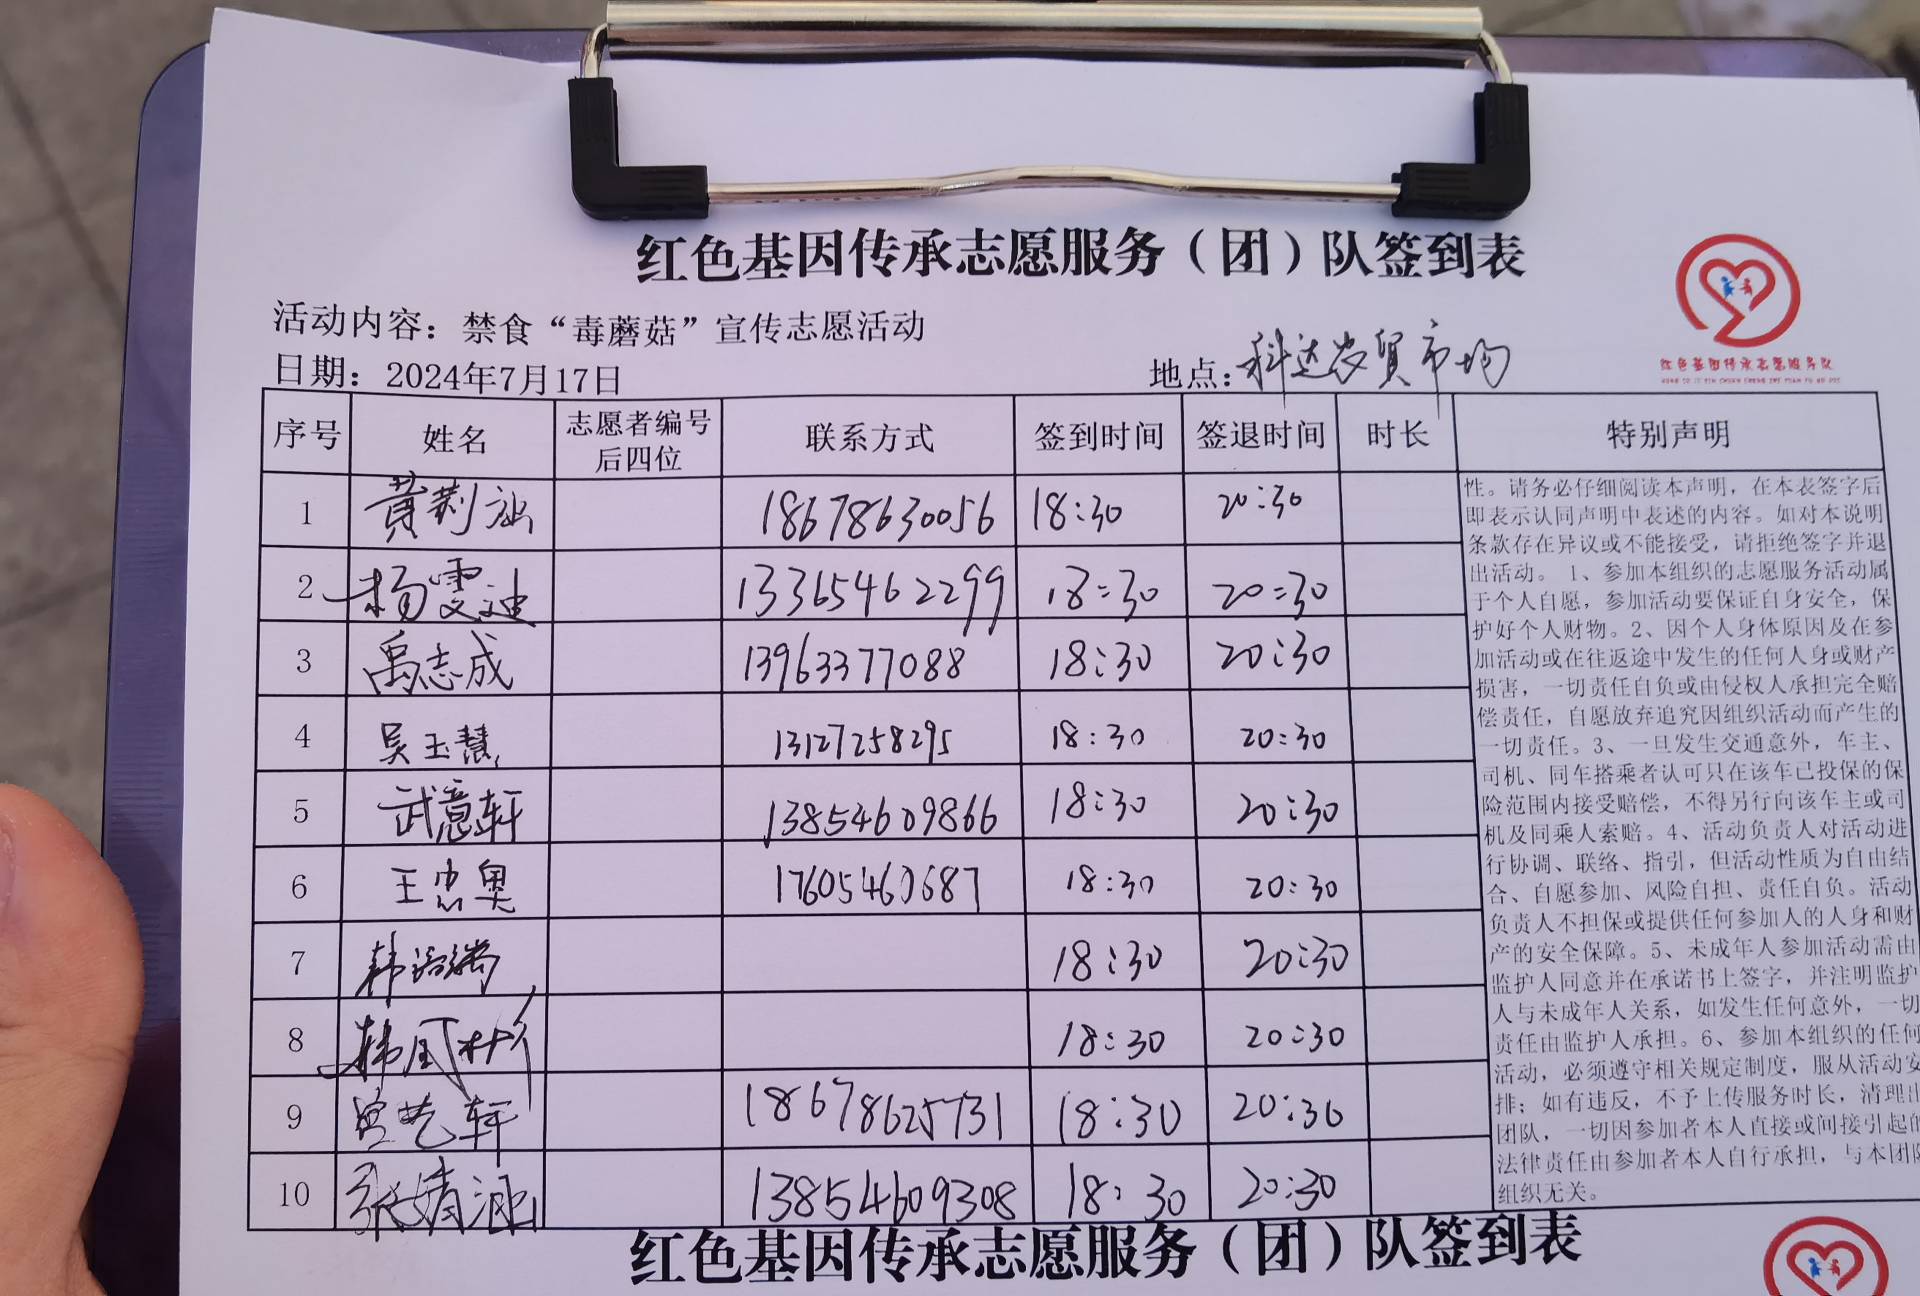 红色基因传承志愿服务（团）队签到表
活动内容：禁食“毒蘑菇”宣传志愿活动
日期：2024年7月17日 地点：科达农贸市场
红色基因传承志愿服务队
序号 姓名 志愿者编号后四位 联系方式 签到时间 签退时间 时长 特别声明
1 黄荆涵 18678630056 18:30 20:30
2 杨雯迪 13365462299 18:30 20:30
3 禹志成 13963377088 18:30 20:30
4 吴玉慧 13127258295 18:30 20:30
5 武意轩 13854609866 18:30 20:30
6 王忠奥 17605460687 18:30 20:30
7 韩 18:30 20:30
8 韩 18:30 20:30
9 曾艺轩 18678625731 18:30 20:30
10 张婧涵 13854609308 18:30 20:30
性。请务必仔细阅读本声明，在本表签字后
即表示认同声明中表述的内容。如对本说明
条款存在异议或不能接受，请拒绝签字并退
出活动。 1、参加本组织的志愿服务活动属
于个人自愿，参加活动要保证自身安全，保
护好个人财物。2、因个人身体原因及在参
加活动或在往返途中发生的任何人身或财产
损害，一切责任自负或由侵权人承担完全赔
偿责任，自愿放弃追究因组织活动而产生的
一切责任。3、一旦发生交通意外，车主、
司机、同车搭乘者认可只在该车已投保的保
险范围内接受赔偿，不得另行向该车主或司
机及同乘人索赔。4、活动负责人对活动进
行协调、联络、指引，但活动性质为自由结
合、自愿参加、风险自担、责任自负。活动
负责人不担保或提供任何参加人的人身和财
产的安全保障。5、未成年人参加活动需由
监护人同意并在承诺书上签字，并注明监护
人与未成年人关系，如发生任何意外，一切
责任由监护人承担。6、参加本组织的任何
活动，必须遵守相关规定制度，服从活动安
排；如有违反，不予上传服务时长，清理出
团队，一切因参加者本人直接或间接引起的
法律责任由参加者本人自行承担，与本团队
组织无关。
红色基因传承志愿服务（团）队签到表